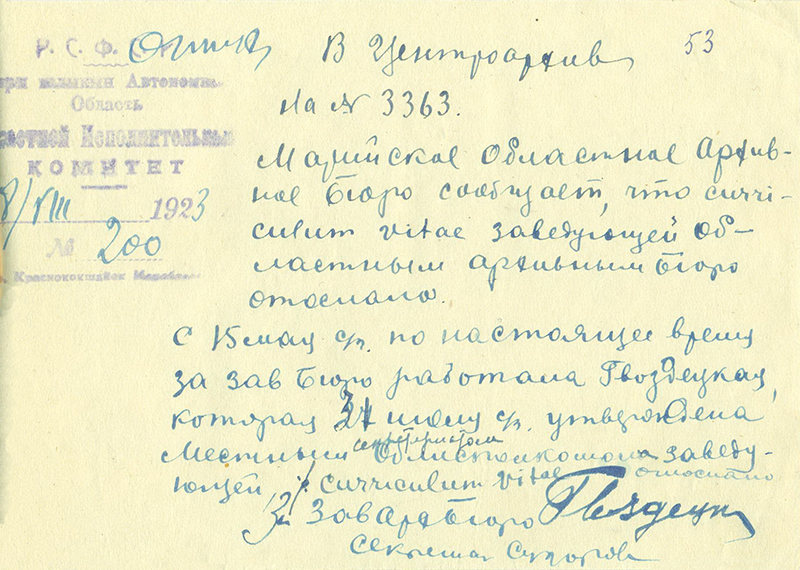 Р. С. Ф. С. Р.
В Центроархив
53
Автономн
Область
Исполнительный
КОМИТЕТ
8/VIII 1923
№ 200
Краснококшайск
На № 3363.
Марийское Областное Архив-
ное Бюро сообщает, что curri-
culum vitae заведующей Об-
ластным архивным Бюро
отослано.
С 15 мая с/г. по настоящее время
за зав Бюро работала Гвоздецкая,
которая июлю с/г. утверждена
секретариатом
Местным Облисполкома заведу-
ющей, curriculum vitae отослано
За Зав Арх Бюро Гвоздецк
Секретар